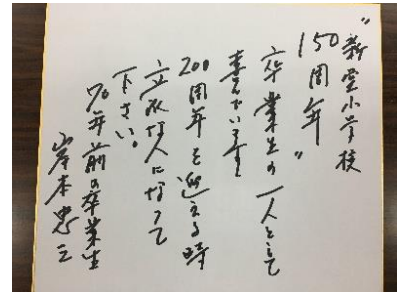 "新堂小学校
150周年"
卒業生の一人として
喜んでいます
200周年を迎える時
立派な人になって
下さい。
70年前の卒業生
岸本忠三